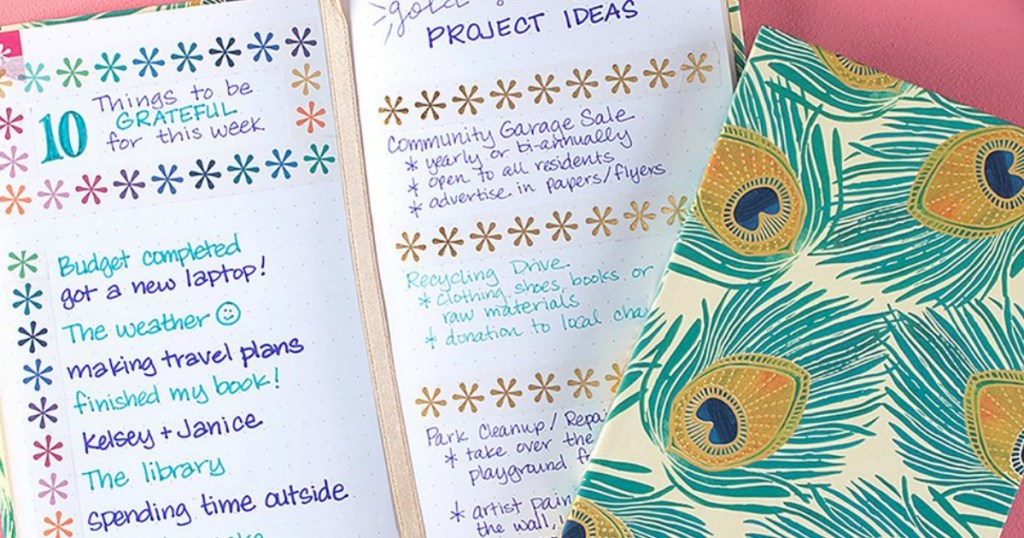 10
Things to be
GRATEFUL
for this week
Budget completed
got a new laptop!
The weather
making travel plans
finished my book!
Kelsey + Janice
The library
spending time outside
gold
PROJECT IDEAS
Community Garage Sale
* yearly or bi-annually
* open to all residents
* advertise in papers/flyers
Recycling Drive
* clothing, shoes, books or
raw materials
* donation to local
Park Cleanup/
* take over the
playground
* artist
the wall,